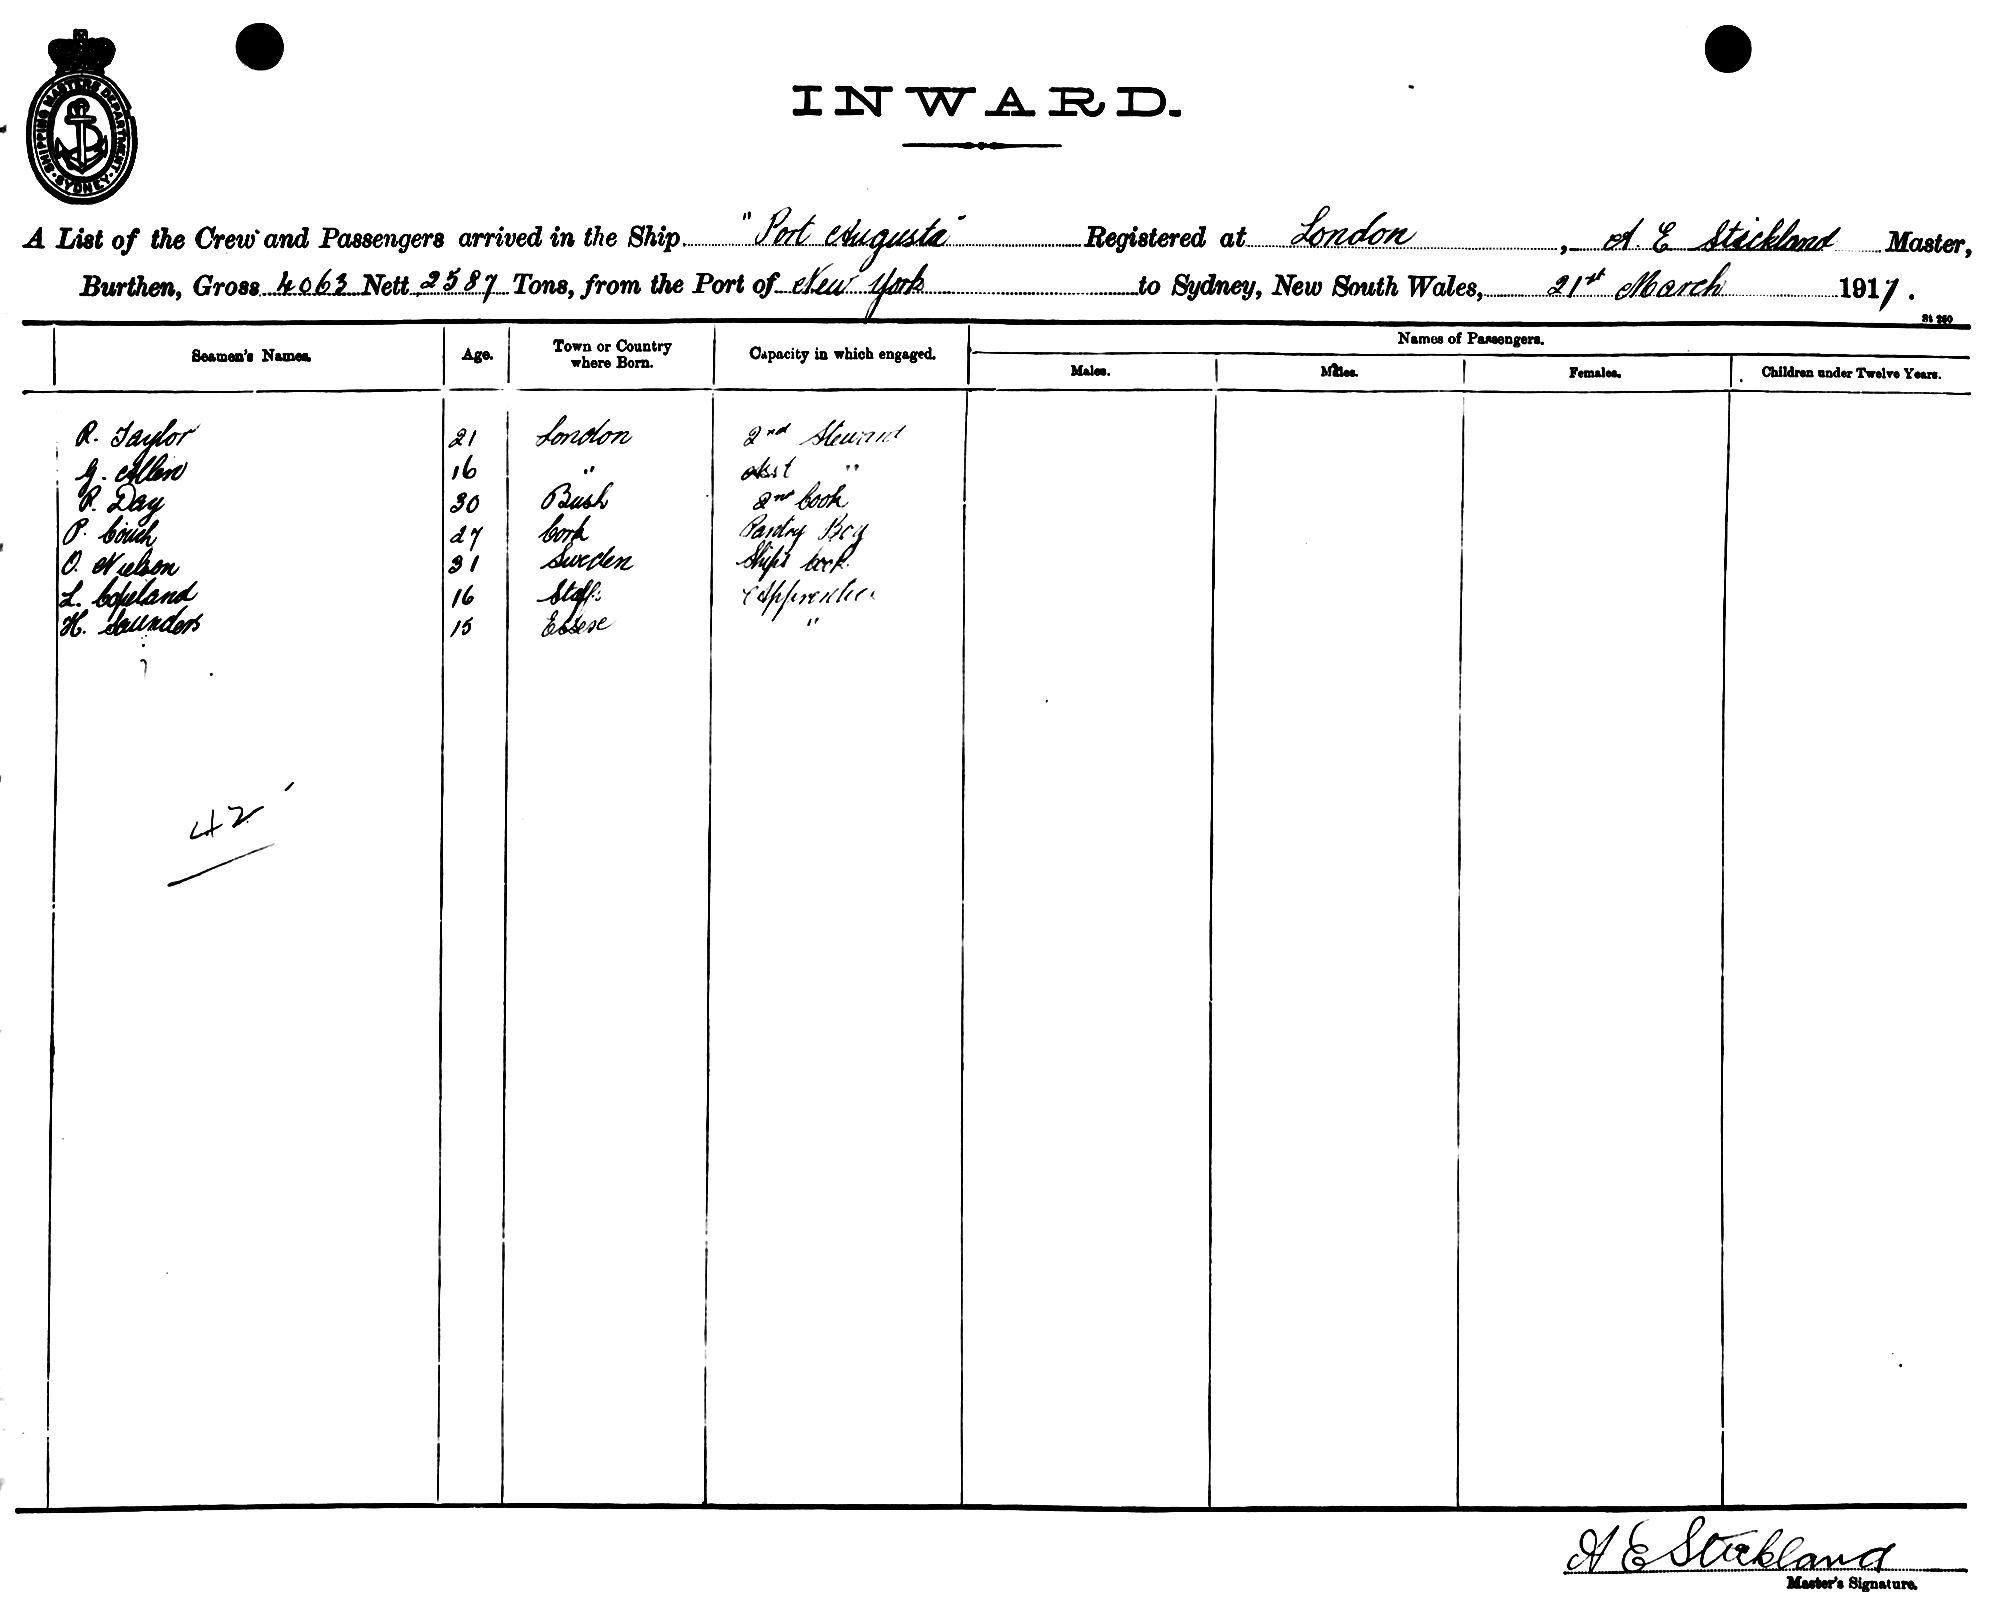 SHIPPING MASTERS DEPARTMENT
SYDNEY
INWARD.
A List of the Crew and Passengers arrived in the Ship "Port Augusta" Registered at London, A E Stickland Master,
Burthen, Gross 4063 Nett 2587 Tons, from the Port of New York to Sydney, New South Wales, 21st March 1917.
St 280
Seamen's Names. Age. Town or Country where Born. Capacity in which engaged. Names of Passengers.
Males. Males. Females. Children under Twelve Years.
R. Taylor 21 London 2nd Steward
G. Allen 16 " Asst "
P. Day 30 Bush 2nd Cook
P. Couch 27 Cork Pantry Boy
O. Nielson 31 Sweden Ships Cook
L. Copeland 16 Staffs Apprentice
H. Saunders 15 Essex "
42
A E Stickland
Master's Signature.